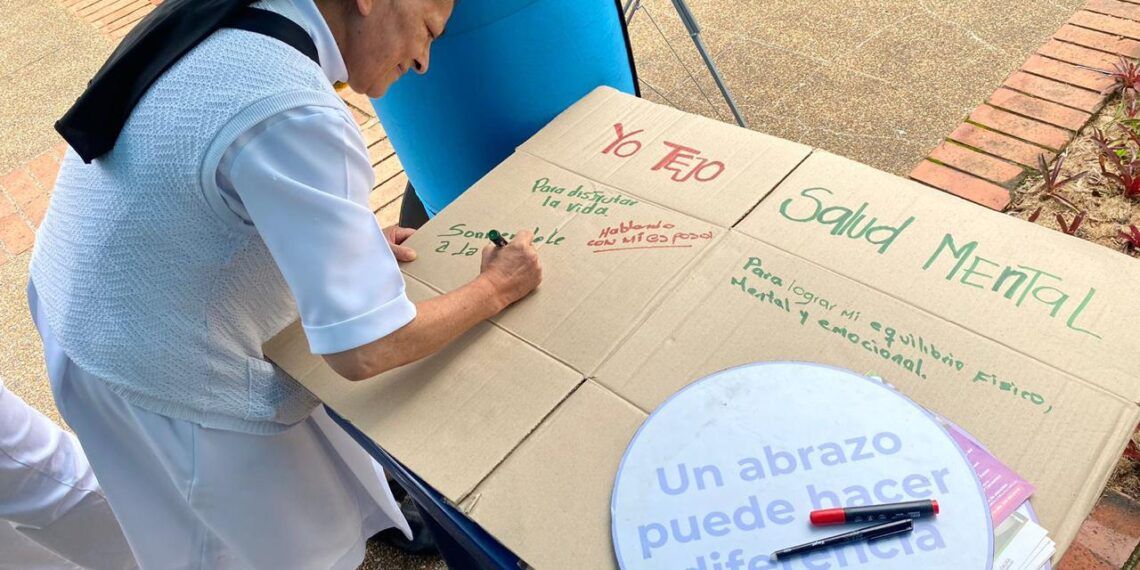 Yo TeJo
Para disfrutar
la vida.
Sonriendole
a la
Hablando
con mi esposa
Salud Mental
Para lograr mi equilibrio Físico,
Mental y emocional.
Un abrazo
puede hacer
diferencia